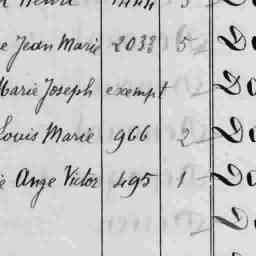 e Jean Marie 2033 5 Do
Marie Joseph exempt Do
Louis Marie 966 2 Do
e Ange Victor 495 1 Do
Do